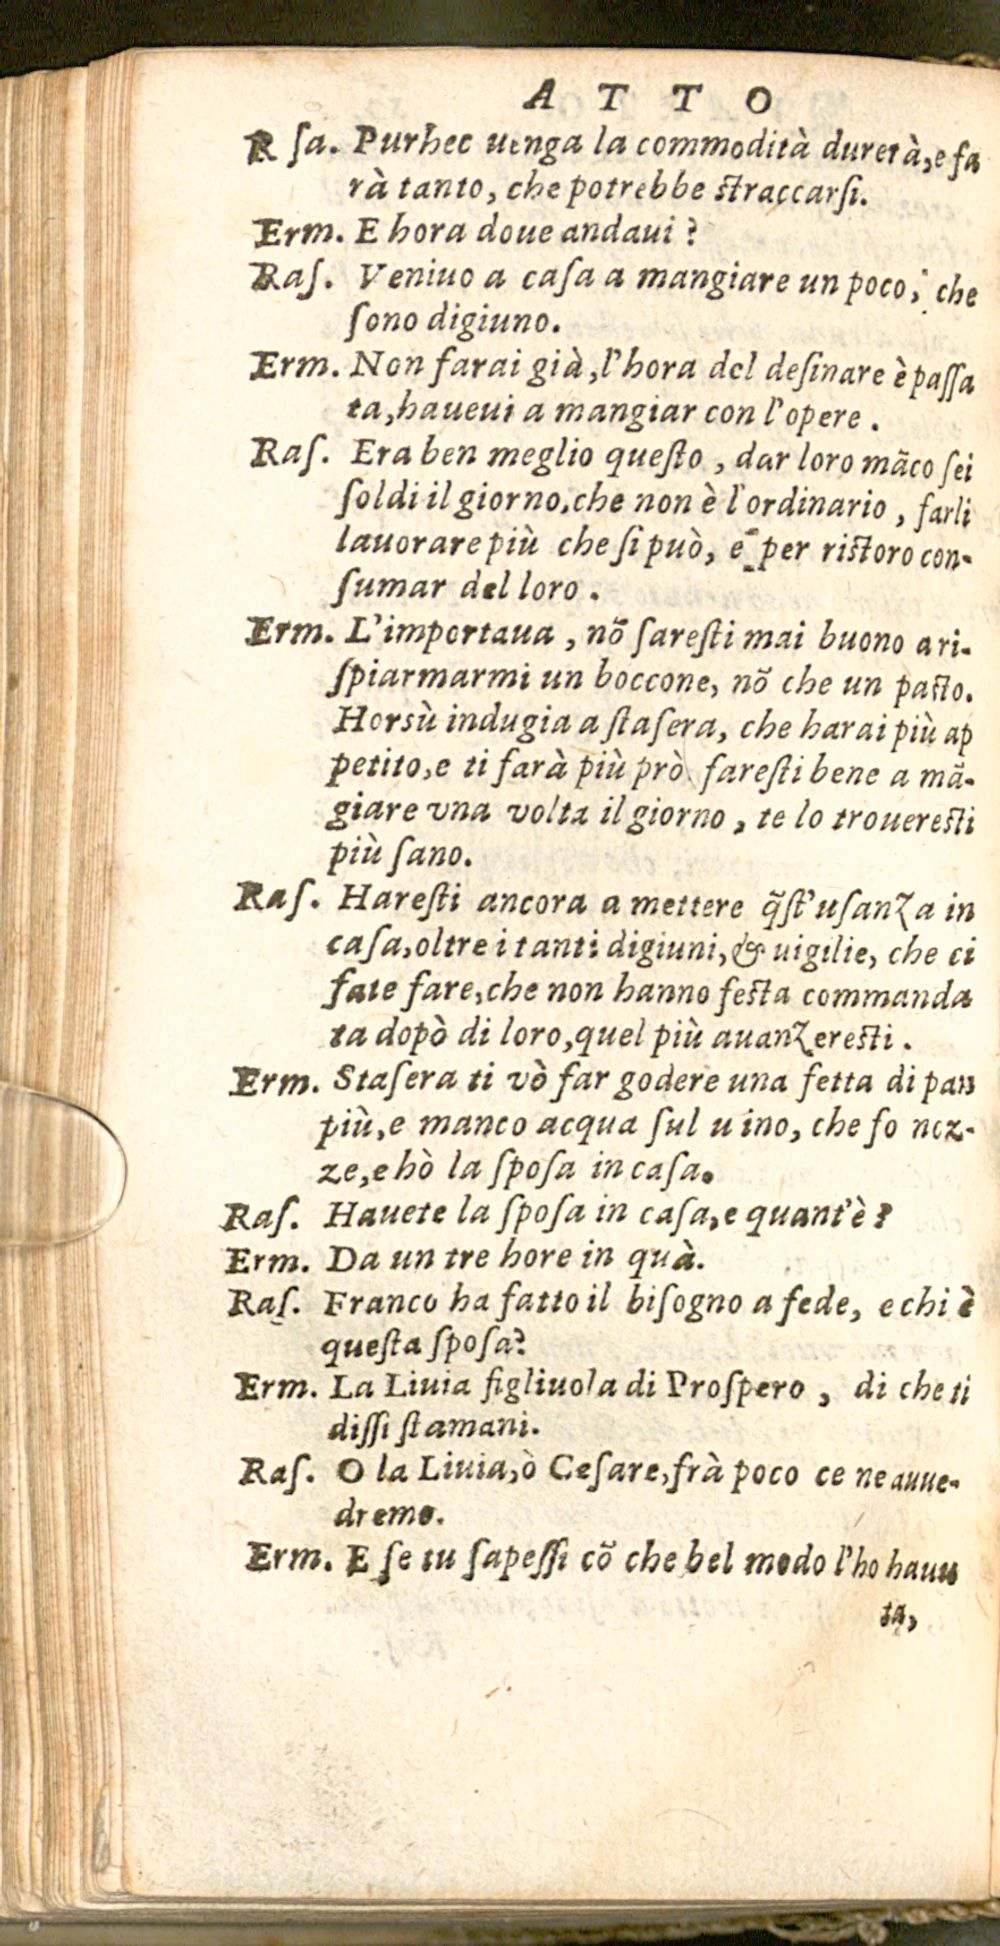 ATTO
R ſa. Purhec uenga la commodità durerà, e fa
rà tanto, che potrebbe ſtraccarſi.
Erm. E hora doue andaui?
Raſ. Veniuo a caſa a mangiare un poco, che
ſono digiuno.
Erm. Non farai già, l'hora del deſinare è paſſa
ta, haueui a mangiar con l'opere.
Raſ. Era ben meglio queſto, dar loro mãco ſei
ſoldi il giorno, che non è l'ordinario, farli
lauorare più che ſi può, e per riſtoro con-
ſumar del loro.
Erm. L'importaua, nõ ſareſti mai buono a ri-
ſpiarmarmi un boccone, nõ che un paſto.
Horsù indugia a ſtaſera, che harai più ap
petito, e ti farà più prò fareſti bene a mã-
giare vna volta il giorno, te lo trouereſti
più ſano.
Raſ. Hareſti ancora a mettere q̃ſt'uſanza in
caſa, oltre i tanti digiuni, & uigilie, che ci
fate fare, che non hanno feſta commanda
ta dopò di loro, quel più auanzereſti.
Erm. Staſera ti vò far godere una fetta di pan
più, e manco acqua ſul uino, che fo noz-
ze, e hò la ſpoſa in caſa.
Raſ. Hauete la ſpoſa in caſa, e quant'è?
Erm. Da un tre hore in quà.
Raſ. Franco ha fatto il biſogno a fede, e chi è
queſta ſpoſa?
Erm. La Liuia figliuola di Proſpero, di che ti
diſſi ſtamani.
Raſ. O la Liuia, ò Ceſare, frà poco ce ne auue-
dremo.
Erm. E ſe tu ſapeſſi cõ che bel modo l'ho hauu
ta,